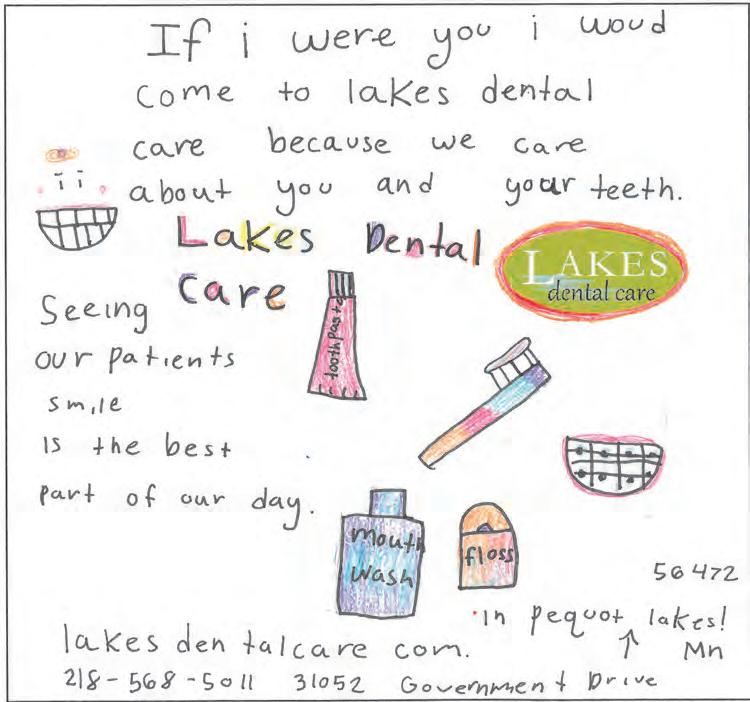 If i were you i woud
come to lakes dental
care because we care
about you and your teeth.
Lakes Dental
Care
LAKES
dental care
Seeing
our patients
smile
is the best
part of our day.
toothpaste
mouth
wash
floss
56472
in pequot lakes!
Mn
lakes dentalcare com.
218-568-5011 31052 Government Drive